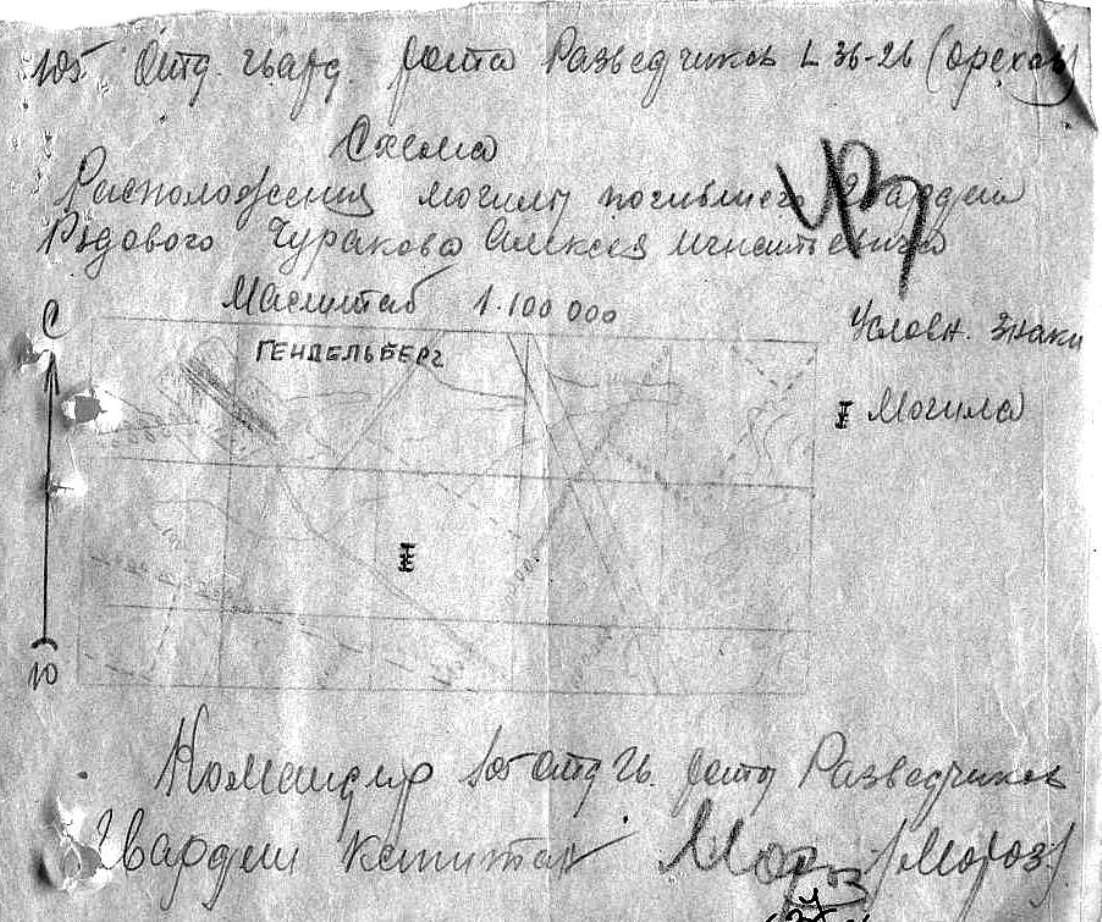 105 Отд. гвард. рота Разведчиков L 36-26 (Орехов)
Схема
Расположения могилы погибшего Гвардии
Рядового Чуракова Алексея Игнатьевича
Масштаб 1:100 000
С
ГЕНДЕЛЬБЕРГ
Условн. Знаки
Могила
Ю
Командир 105 отд гв. роты Разведчиков
Гвардии капитан Мороз /Мороз/